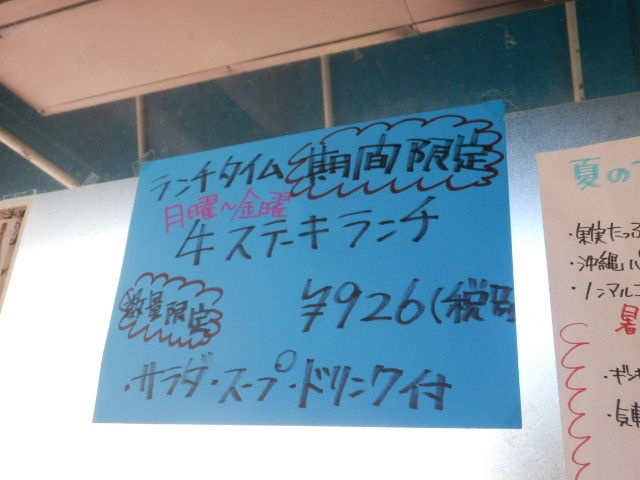 ランチタイム 期間限定
月曜～金曜
牛ステーキランチ
数量限定
¥926(税別
・サラダ・スープ・ドリンク付
夏の
・果実たっ
・沖縄
・ノンアルコ
暑